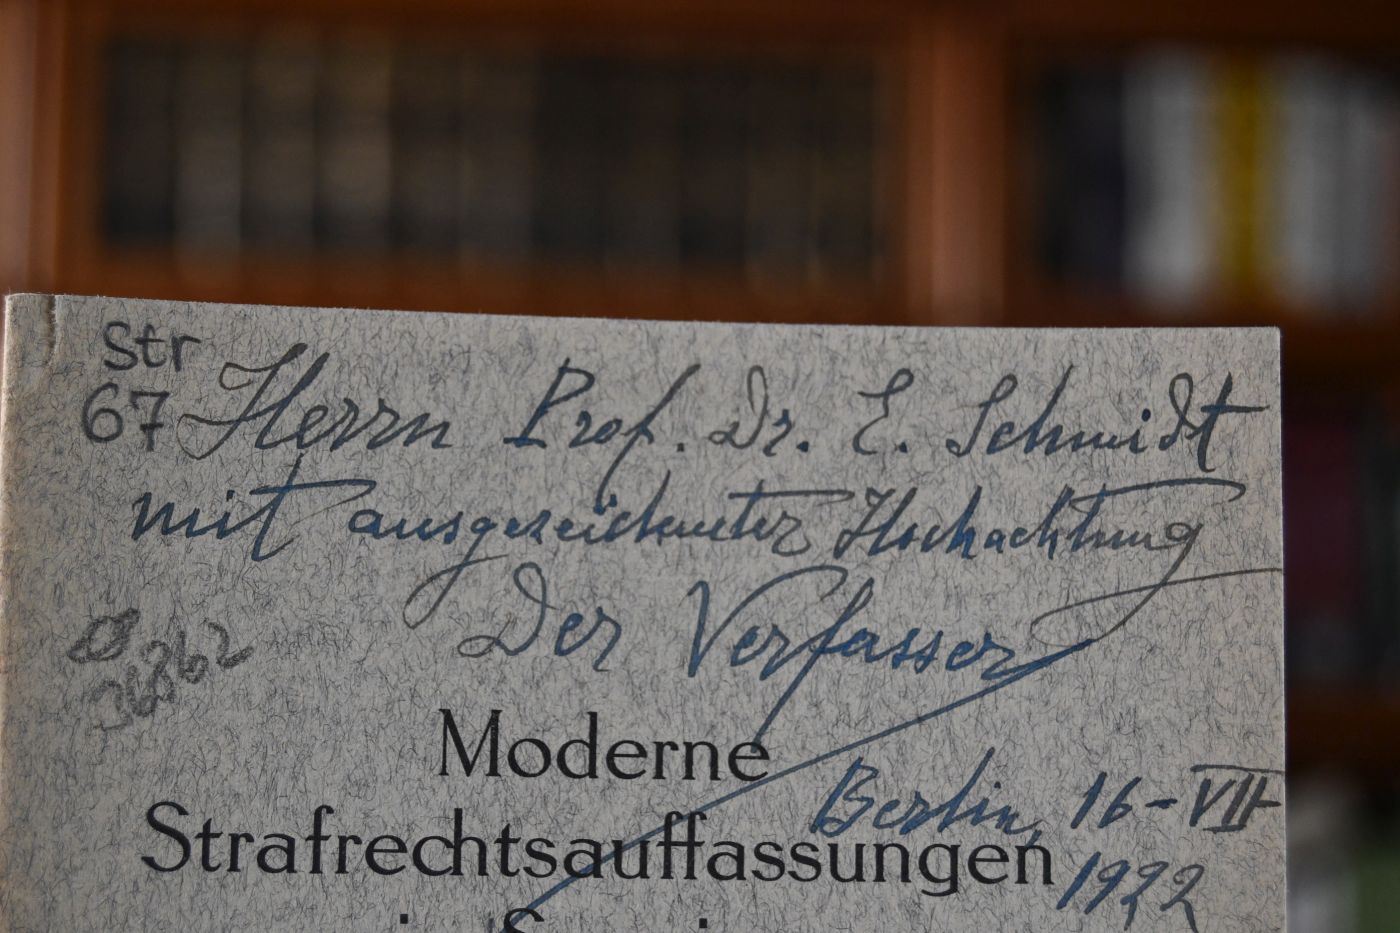 Str
67
Herrn Prof. Dr. E. Schmidt
mit ausgezeichneter Hochachtung
Der Verfasser
Moderne
Strafrechtsauffassungen
Berlin, 16-VII
1922